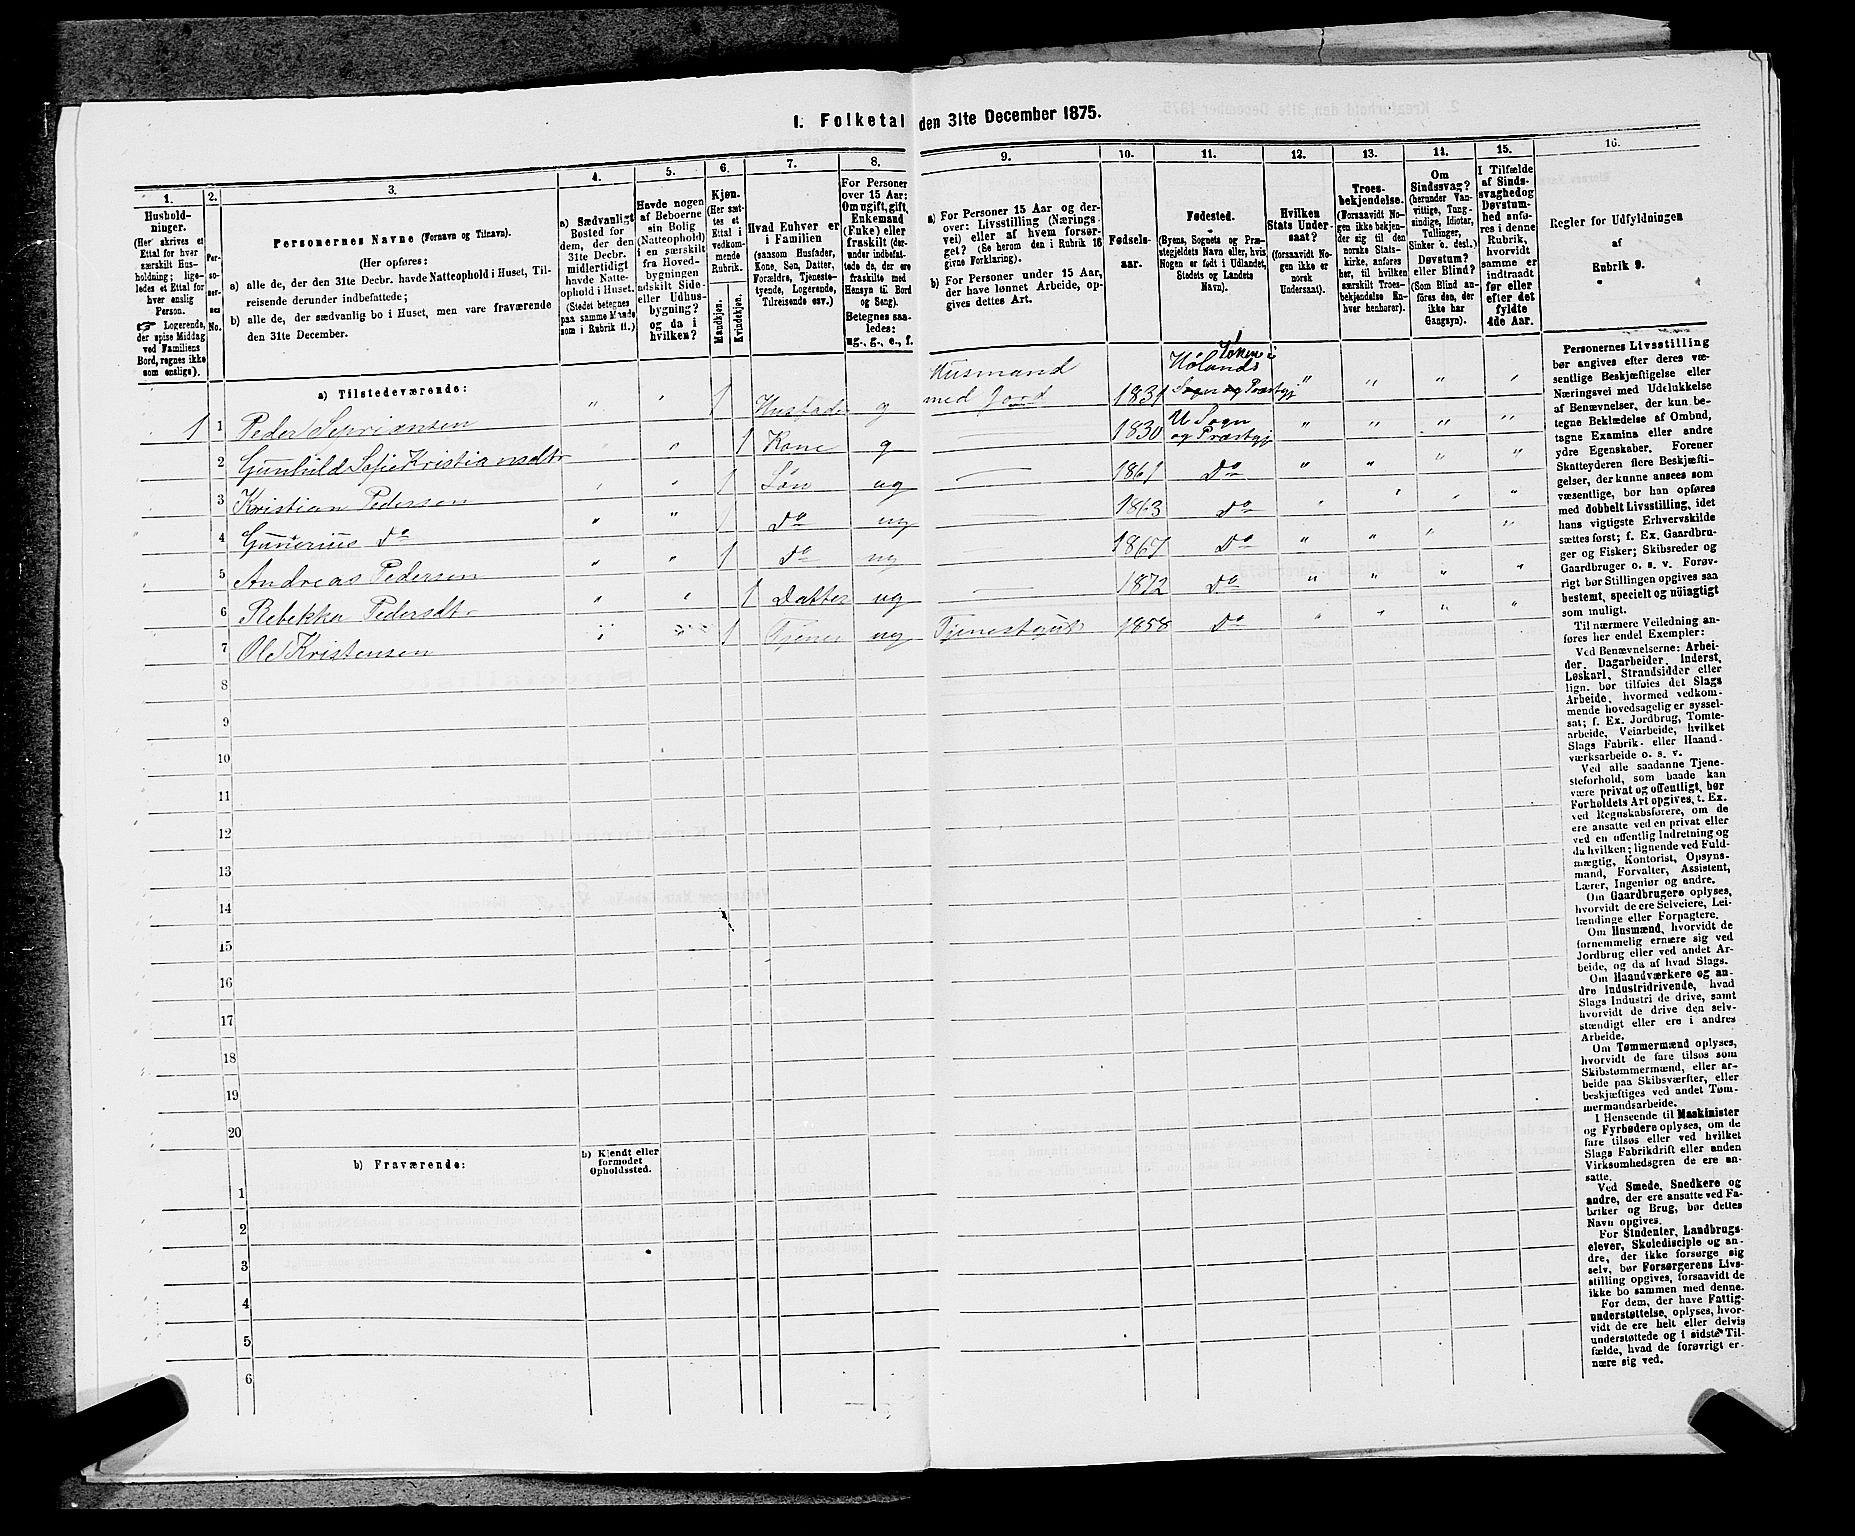 I. Folketal den 31te December 1875.
1.
Hushold-
ninger.
(Her skrives et
Ettal for hver
særskilt Hus-
holdning; lige-
ledes et Ettal for
hver enslig
Person.
☞ Logerende,
der spise Middag
ved Familiens
Bord, regnes ikke
som enslige).
2.
Per-
so-
ner-
nes
No.
3.
Personernes Navne (Fornavn og Tilnavn).
(Her opføres:
a) alle de, der den 31te Decbr. havde Natteophold i Huset, Til-
reisende derunder indbefattede;
b) alle de, der sædvanlig bo i Huset, men vare fraværende
den 31te December.
4.
a) Sædvanligt
Bosted for
dem, der den
31te Decbr.
midlertidigt
havde Natte-
ophold i Huset.
(Stedet betegnes
paa samme Maade
som i Rubrik 11.)
5.
Havde nogen
af Beboerne
sin Bolig
(Natteophold)
i en særskilt
fra Hoved-
bygningen
adskilt Side-
eller Udhus-
bygning?
og da i
hvilken?
6.
Kjøn.
(Her sæt-
tes et
Ettal i
vedkom-
mende
Rubrik.
Mandkjøn.
Kvindekjøn.
7.
Hvad Enhver er
i Familien
(saasom Husfader,
Kone, Søn, Datter,
Forældre, Tjeneste-
tyende, Logerende,
Tilreisende osv.)
8.
For Personer
over 15 Aar:
Om ugift, gift,
Enkemand
(Enke) eller
fraskilt (der-
under indbefat-
tede de, der ere
fraskilte med
Hensyn til Bord
og Seng).
Betegnes saa-
ledes:
ug., g., e., f.
9.
a) For Personer 15 Aar og der-
over: Livsstilling (Nærings-
vei) eller af hvem forsør-
get? (Se herom den i Rubrik 16
givne Forklaring).
b) For Personer under 15 Aar,
der have lønnet Arbeide, op-
gives dettes Art.
10.
Fødsels-
aar.
11.
Fødested.
(Byens, Sognets og Præ-
stegjeldets Navn eller, hvis
Nogen er født i Udlandet,
Stedets og Landets
Navn).
12.
Hvilken
Stats Under-
saat?
(forsaavidt No-
gen ikke er
norsk
Undersaat).
13.
Troes-
bekjendelse.
(Forsaavidt No-
gen ikke bekjen-
der sig til den
norske Stats-
kirke, anføres
her, til hvilken
særskilt Troes-
bekjendelse En-
hver henhører).
14.
Om
Sindssvag?
(herunder Van-
vittige, Tung-
sindige, Idioter,
Tullinger,
Sinker o. desl.)
Døvstum?
eller Blind?
(Som Blind an-
føres den, der
ikke har
Gangsyn).
15.
I Tilfælde
af Sinds-
svaghed og
Døvstum-
hed anfø-
res i denne
Rubrik,
hvorvidt
samme er
indtraadt
før eller
efter det
fyldte
4de Aar.
16.
Regler for Udfyldningen
af
Rubrik 9.
a) Tilstedeværende:
1 1 Peder Seversen " " 1 Husfader g Husmand med Jord 1831 Høland Sogn og Præstgj " " " "
2 Gunhild Sofie Kristiansdtr " 1 Kone g 1830 U Sogn og Præstgj " " " "
3 Kristian Pedersen " " 1 Søn ug 1861 Do " " " "
4 Gunerius Do " " 1 Do ug 1863 Do " " " "
5 Andreas Pedersen " " 1 Do ug 1867 Do " " " "
6 Rebekka Pedersdtr " " 1 Datter ug 1872 Do " " " "
7 Ole Kristensen " 1 Tjener ug Tjenestgut 1858 Do " " " "
8
9
10
11
12
13
14
15
16
17
18
19
20
b) Fraværende:
b) Kjendt eller
formodet
Opholdssted.
1
2
3
4
5
6
Personernes Livsstilling
bør angives efter deres væ-
sentlige Beskjæftigelse eller
Næringsvei med Udelukkelse
af Benævnelser, der kun be-
tegne Beklædelse af Ombud,
tagne Examina eller andre
ydre Egenskaber. Forener
Skatteyderen flere Beskjæfti-
gelser, der kunne ansees som
væsentlige, bør han opføres
med dobbelt Livsstilling, idet
hans vigtigste Erhvervskilde
sættes først; f. Ex. Gaardbru-
ger og Fisker; Skibsreder og
Gaardbruger o. s. v. Forøv-
rigt bør Stillingen opgives saa
bestemt, specielt og nøiagtigt
som muligt.
Til nærmere Veiledning an-
føres her endel Exempler:
Ved Benævnelserne: Arbei-
der, Dagarbeider, Inderst,
Løskarl, Strandsidder eller
lign. bør tilføies det Slags
Arbeide, hvormed vedkom-
mende hovedsagelig er syssel-
sat; f. Ex. Jordbrug, Tomte-
arbeide, Veiarbeide, hvilket
Slags Fabrik- eller Haand-
værksarbeide o. s. v.
Ved alle saadanne Tjene-
steforhold, som baade kan
være privat og offentligt, bør
Forholdets Art opgives, t. Ex.
ved Regnskabsførere, om de
ere ansatte ved en privat eller
ved en offentlig Indretning og
da hvilken; lignende ved Fuld-
mægtig, Kontorist, Opsyns-
mand, Forvalter, Assistent,
Lærer, Ingeniør og andre.
Om Gaardbrugere oplyses,
hvorvidt de ere Selveiere, Lei-
lændinge eller Forpagtere.
Om Husmænd, hvorvidt de
fornemmelig ernære sig ved
Jordbrug eller ved andet Ar-
beide, og da af hvad Slags.
Om Haandværkere og an-
dre Industridrivende, hvad
Slags Industri de drive, samt
hvorvidt de drive den selv-
stændigt eller ere i andres
Arbeide.
Om Tømmermænd oplyses,
hvorvidt de fare tilsøs som
Skibstømmermænd, eller ar-
beide paa Skibsværfter, eller
beskjæftiges ved andet Tøm-
mermandsarbeide.
I Henseende til Maskinister
og Fyrbødere oplyses, om de
fare tilsøs eller ved hvilket
Slags Fabrikdrift eller anden
Virksomhedsgren de ere an-
satte.
Ved Smede, Snedkere og
andre, der ere ansatte ved Fa-
briker og Brug, bør dettes
Navn opgives.
For Studenter, Landbrugs-
elever, Skoledisciple og an-
dre, der ikke forsørge sig
selv, bør Forsørgerens Livs-
stilling opgives, forsaavidt de
ikke bo sammen med denne.
For dem, der have Fattig-
understøttelse, oplyses, hvor-
vidt de ere helt eller delvis
understøttede og i sidste Til-
fælde, hvad de forøvrigt er-
nære sig ved.